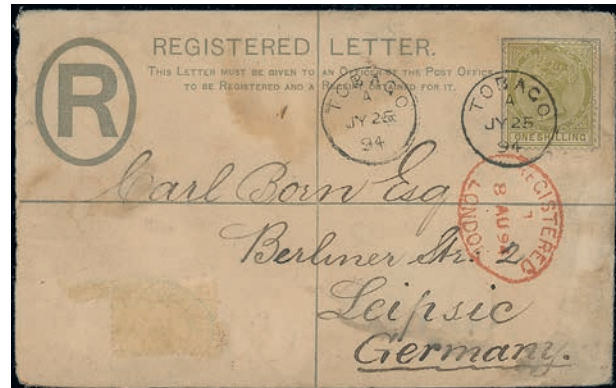 R
REGISTERED LETTER.
THIS LETTER MUST BE GIVEN TO AN OFFICER OF THE POST OFFICE
TO BE REGISTERED AND A RECEIPT OBTAINED FOR IT.
TOBAGO
A
JY 25
94
TOBAGO
A
JY 25
94
ONE SHILLING
REGISTERED
8 AU 94
LONDON
Carl Born Esq
Berliner Str: 2
Leipsic
Germany.